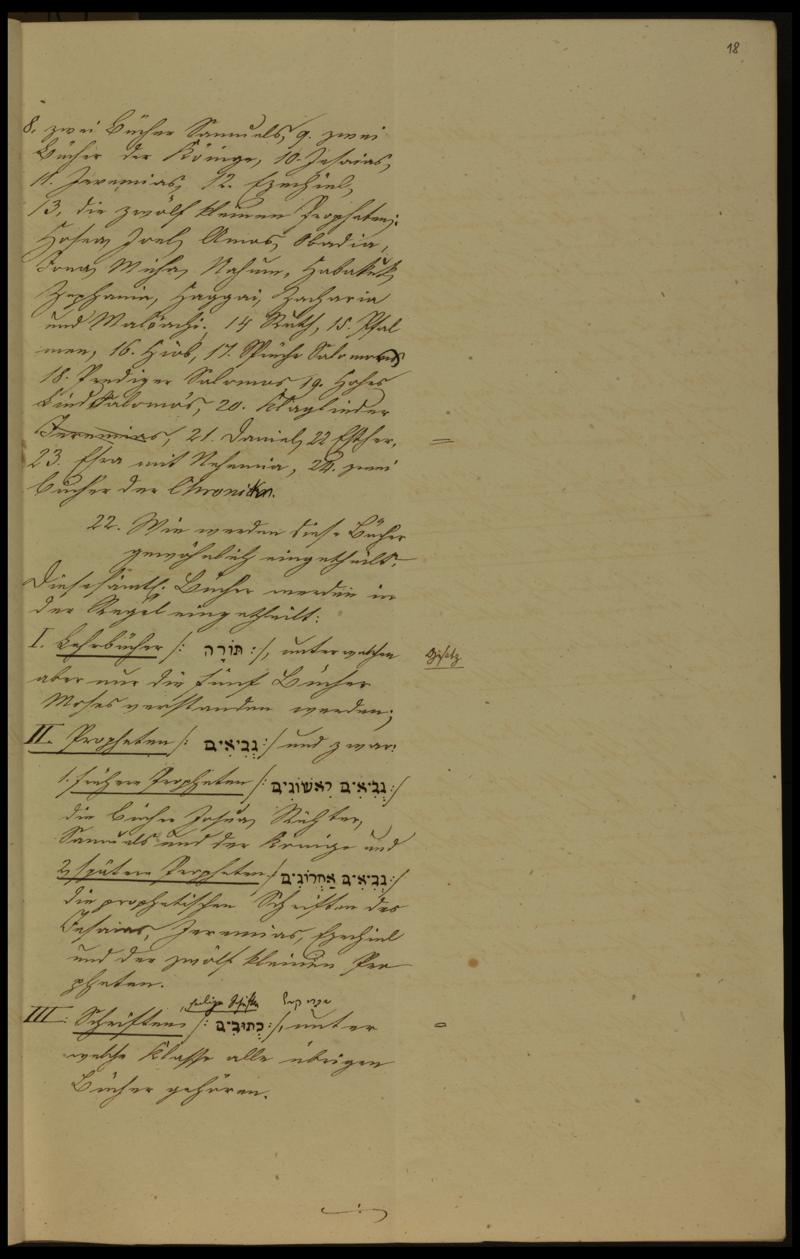 18
8. zwei Bücher Samuels, 9. zwei
Bücher der Könige, 10. Jesaias,
11. Jeremias, 12. Ezechiel,
13. die zwölf kleinen Propheten:
Hosea, Joel, Amos, Obadia,
Jona, Micha, Nahum, Habakuk,
Zephania, Haggai, Zacharia
und Maleachi; 14 Ruth, 15. Psal
men, 16. Hiob, 17. Sprüche Salomons
18. Prediger Salomos, 19. Hohes
Lied Salomo's, 20. Klaglieder
Jeremias, 21. Daniel, 22 Esther,
23. Esra mit Nehemia, 24. zwei
Bücher der Chronika.
22. Wie werden diese Bücher
gewöhnlich eingetheilt?
Diese sämtl. Bücher werden in
der Regel eingetheilt:
I. Lehrbücher /: תּוֹרָה :/, unter welchen
Gesetz
aber nur die fünf Bücher
Moses verstanden werden;
II. Propheten /: נְבִיאִים :/ und zwar:
1. frühere Propheten /: נְבִיאִים רִאשׁוֹנִים :/
die Bücher Josua, Richter,
Samuels und der Könige und
2, spätere Propheten /: נְבִיאִים אַחְרוֹנִים :/
die prophetischen Schriften des
Jesaias, Jeremias, Ezechiel
und der zwölf kleinen Pro
pheten.
heilige Schriften
III. Schriften /: כְּתוּבִים :/, unter
welche Klasse alle übrigen
Bücher gehören.